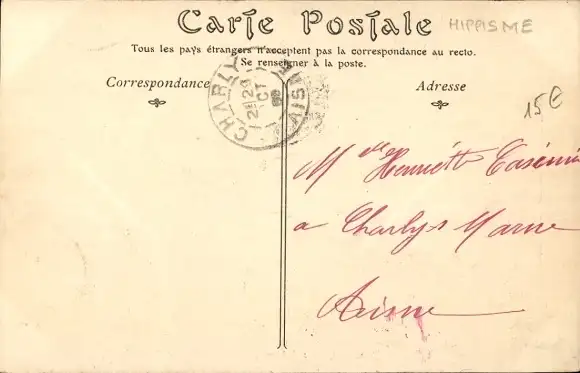 Carte Postale
HIPPISME
Tous les pays étrangers n'acceptent pas la correspondance au recto.
Se renseigner à la poste.
Correspondance
Adresse
15€
CHARLY
AISNE
OCT
Mlle Henriette
a Charly s Marne
Aisne